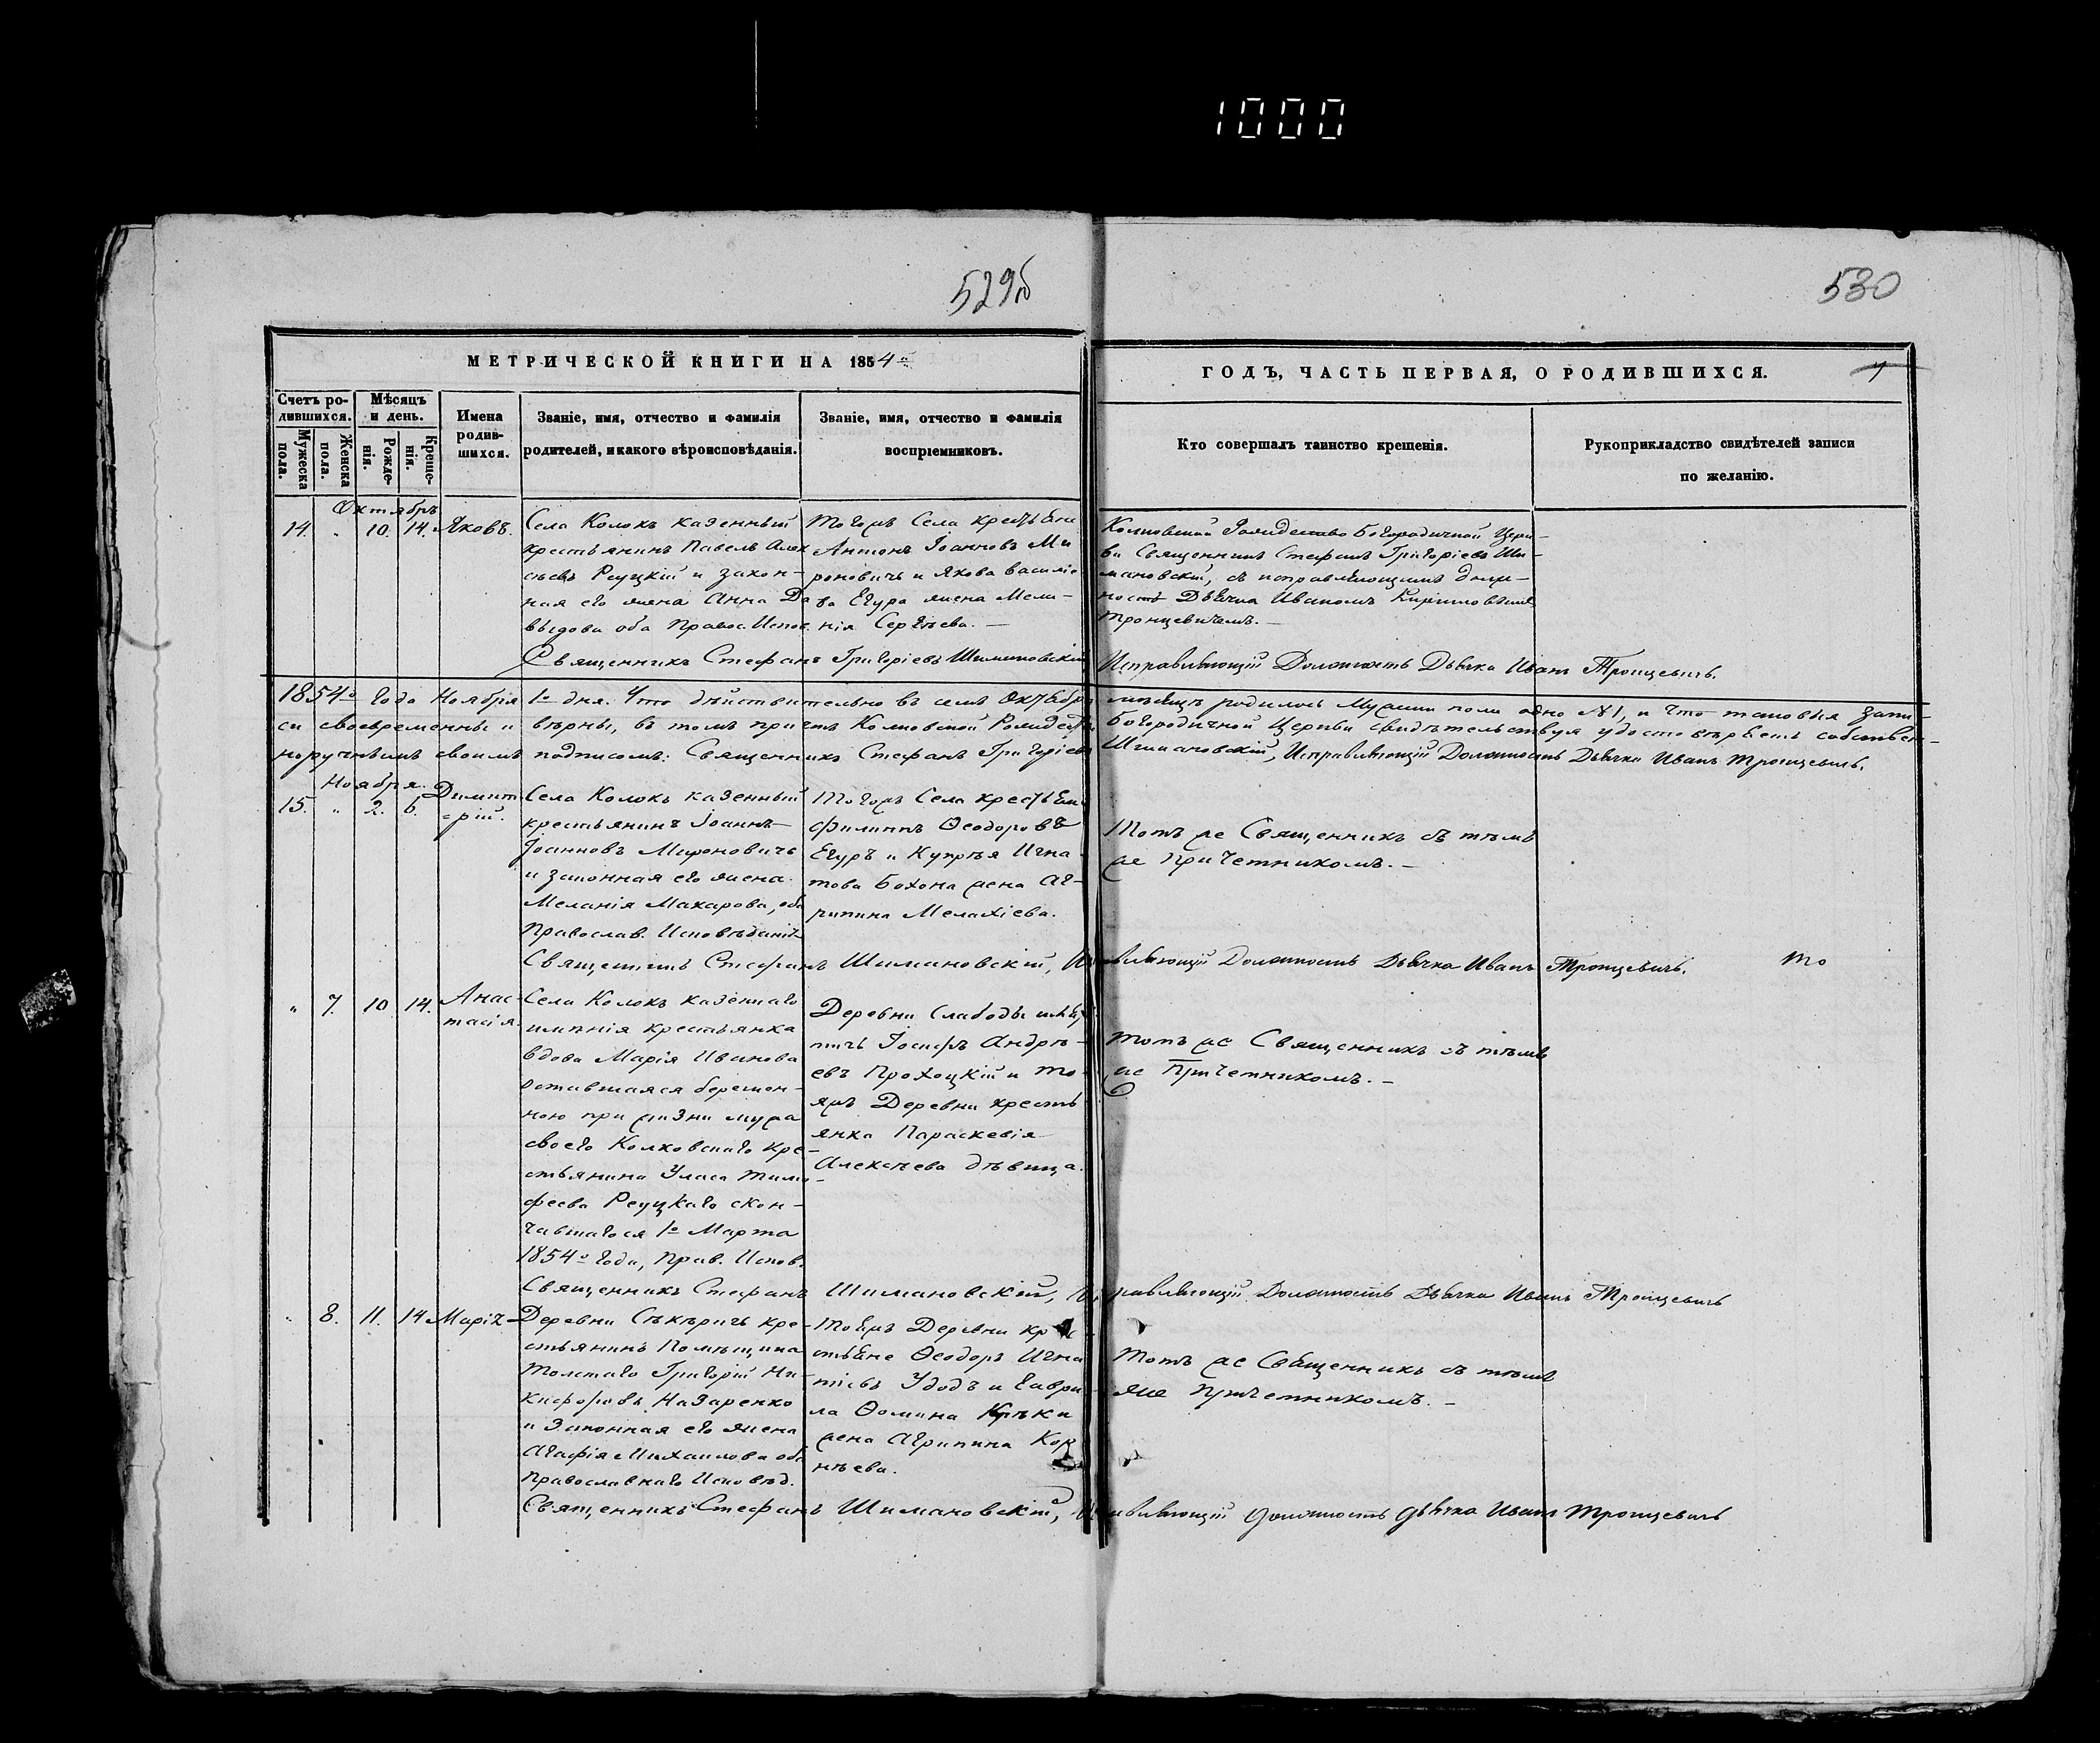 1000
529об
530
МЕТРИЧЕСКОЙ КНИГИ НА 1854го
ГОДЪ, ЧАСТЬ ПЕРВАЯ, О РОДИВШИХСЯ.
Счетъ ро-
дившихся.
Мужеска
пола.
Женска
пола.
Мѣсяцъ
и день.
Рожде-
нія.
Креще-
нія.
Имена
родив-
шихся.
Званіе, имя, отчество и фамилія
родителей, и какого вѣроисповѣданія.
Званіе, имя, отчество и фамилія
воспріемниковъ.
Кто совершалъ таинство крещенія.
Рукоприкладство свидѣтелей записи
по желанію.
Октябрь
14. " 10. 14. Яковъ.
Села Колокъ казенный
крестьянинъ Павелъ Алек
сѣевъ Реуцкій и закон-
ная его жена Анна Да
выдова оба Правос. Испов.
Тогожъ Села крестьяне
Антонъ Іоанновъ Ми
роновичъ и Якова Василіе
ва Егура жена Мела-
нія Сергѣева. —
Колковской Рождество Богородичной Церк-
ви Священникъ Стефанъ Григоріевъ Ши-
мановскій, съ исправляющимъ долж-
ность Дьячка Иваномъ
Троицевичемъ. —
Священникъ Стефанъ Григоріевъ Шимановскій
Исправляющій Должность Дьячка Иванъ Троицевичъ.
1854го Года Ноября 1го дня. Что дѣйствительно въ семъ Октябрѣ мѣсяцѣ родилось Мужеска пола одно №1, и что таковыя запи-
си своевременны и вѣрны, въ томъ причтъ Колковской Рождество Богородичной Церкви свидѣтельствуя удостовѣряетъ собствен-
норучнымъ своимъ подписомъ: Священникъ Стефанъ Григоріевъ Шимановскій, Исправляющій Должность Дьячка Иванъ Троицевичъ.
Ноября.
15. " 2. 6. Димит
рій.
Села Колокъ казенный
крестьянинъ Іоаннъ
Іоанновъ Мироновичъ
и законная его жена
Меланія Макарова, оба
Православ. Исповѣданія
Тогожъ Села крестьяне
Филиппъ Ѳеодоровъ
Егуръ и Игна
това Бохона жена Аг-
рипина Мелахіева.
Тотъ же Священникъ съ тѣмъ
же Причетникомъ. —
Священникъ Стефанъ Шимановскій, Исправляющій Должность Дьячка Иванъ Троицевичъ.
То
" 7. 10 14. Анас
тасія.
Села Колокъ казеннаго
имѣнія крестьянка
вдова Марія Иванова
оставшаяся беремен-
ною при жизни мужа
своего Колковскаго кре-
стьянина Уласа Тимо
феева Реуцкаго скон-
чавшагося 1го Марта
1854го Года, Прав. Испов.
Деревни Слабоды
Іосифъ Андрѣ-
евъ Прохоцкій и То
яжъ Деревни кресть
янка Параскевія
Алексѣева дѣвица.
Тотъ же Священникъ съ тѣмъ
же Причетникомъ. —
Священникъ Стефанъ Шимановскій, Исправляющій Должность Дьячка Иванъ Троицевичъ
" 8. 11. 14 Марія
Деревни Сѣкѣричъ кре-
стьянинъ Помѣщика
Толстаго Григорій Ни-
кифоровъ Назаренко
и Законная его жена
Агафія Михаилова оба
Православнаго Исповѣд.
Тояжъ Деревни кре
стьяне Ѳеодоръ Игна
тіевъ Удодъ и Гаври-
ла Ѳомина
жена Агрипина Кор
нѣева.
Тотъ же Священникъ съ тѣмъ
же Причетникомъ. —
Священникъ Стефанъ Шимановскій, Исправляющій Должность Дьячка Иванъ Троицевичъ